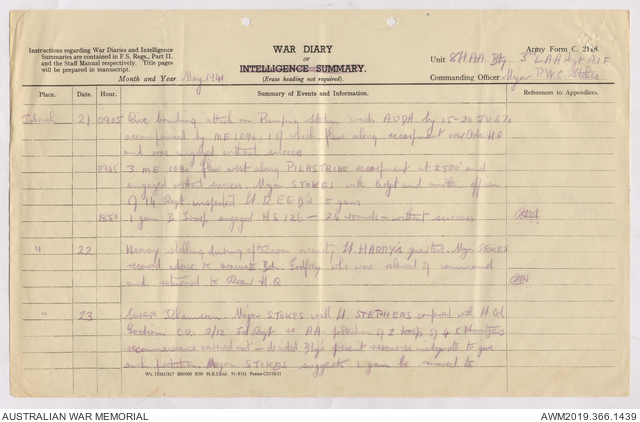 Instructions regarding War Diaries and Intelligence
Summaries are contained in F.S. Regs., Part II
and the Staff Manual respectively. Title pages
will be prepared in manuscript.
WAR DIARY
OF
INTELLIGENCE SUMMARY.
(Erase heading not required).
Army Form C. 2118.
Unit 8 H AA Bty 3 LAA Regt AIF
Commanding Officer Major P.W.C. Stokes
Month and Year May 1941
Place. Date. Hour. Summary of Events and Information. References to Appendices.
Tobruk 21 0905 Dive bombing attack on Pumping Station AUDA by 15-20 JU 87s
accompanied by ME 109s, 1 of which flew along escarpment over H.Q.
and was engaged without success
0945 3 ME 109s flew west along PILASTRINO escarpment at 2500' and
engaged without success. Major STOKES with Adjt and another officer
of 14 Regt inspected Lt REED's 5 guns
1850 1 gun B Troop engaged HS 126 - 26 rounds - without success
" 22 Heavy shelling during afternoon vicinity Lt HARRY's quarters. Major STOKES
received advice to Bdr. Godfrey who was relieved of command
and returned to Rear H.Q.
" 23 Severe Major STOKES with Lt STEPHENS conferred with Lt Col
Goodwin C.O. 2/12 Fd Regt re AA protection of 2 troops of 4.5 Howitzers
reconnaissance carried out - decided Bty's present resources inadequate to give
such protection. Major STOKES suggests 1 gun be moved to
AUSTRALIAN WAR MEMORIAL
AWM2019.366.1439